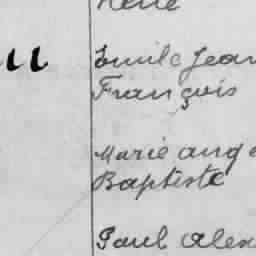 René
Emile Jean
François
Marie ang
Baptiste
Paul alex